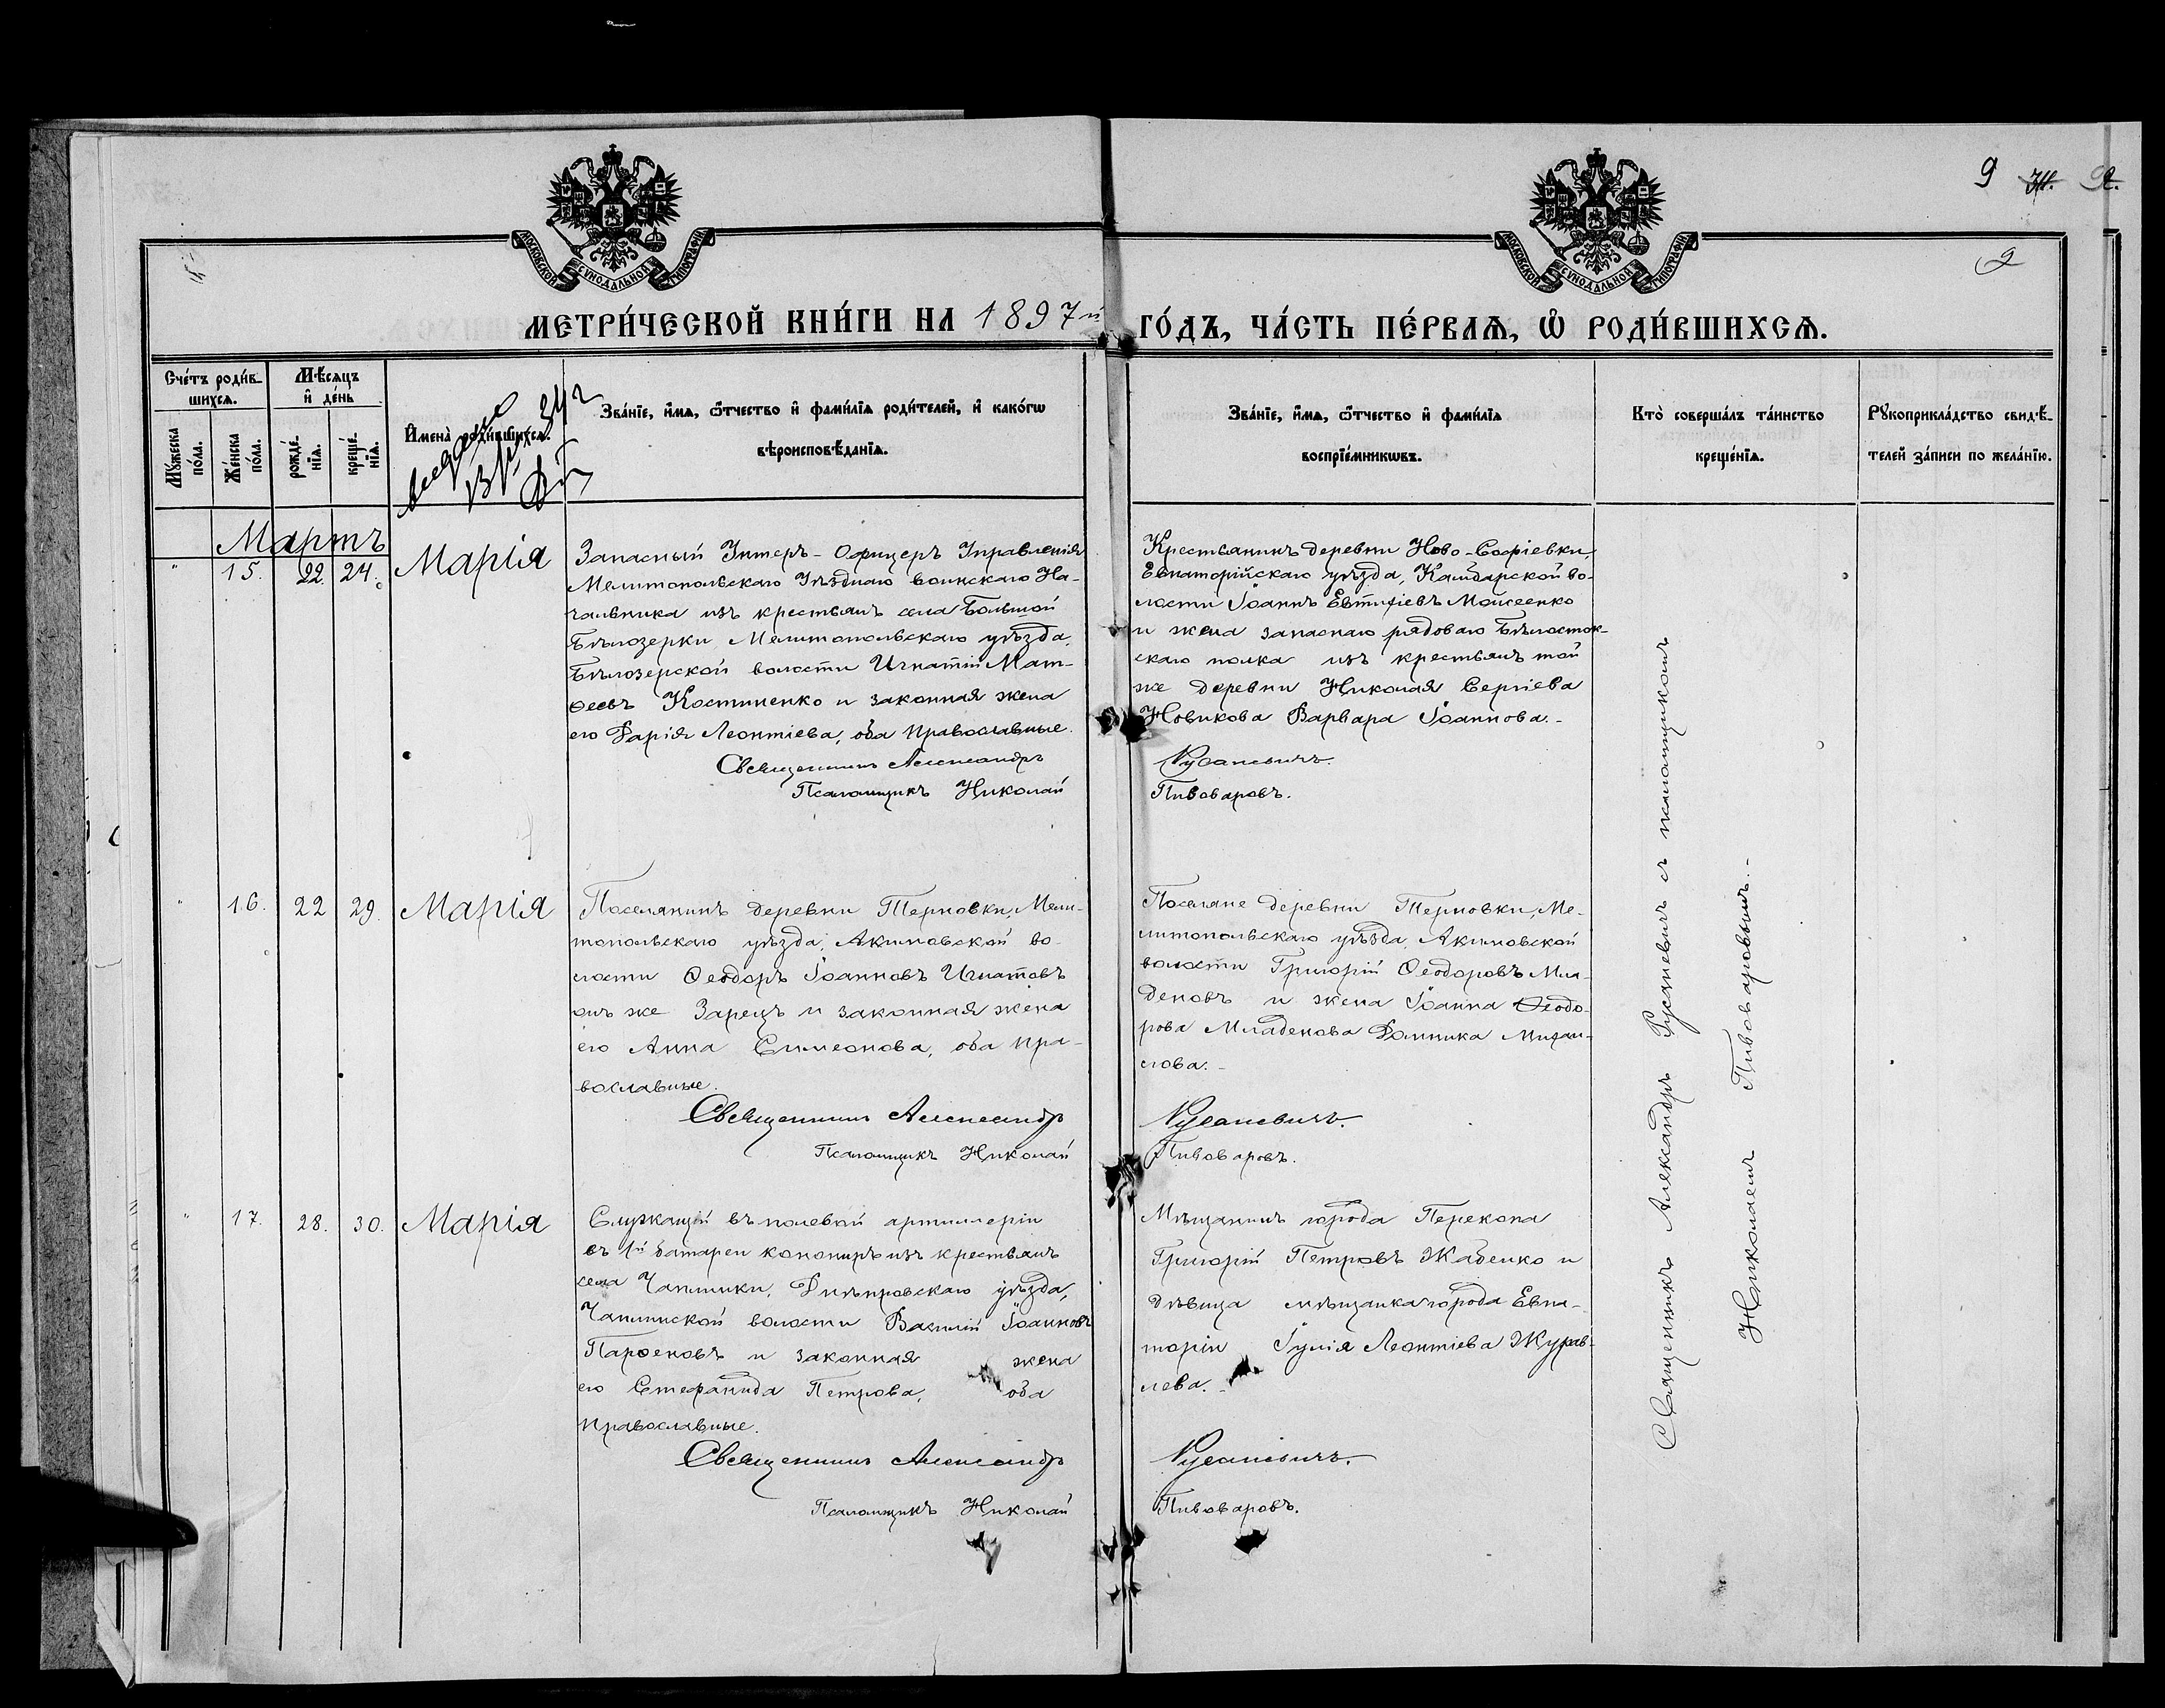 9
МОСКОВСКОЙ СѴНОДАЛЬНОЙ ТИПОГРАФІИ
МОСКОВСКОЙ СѴНОДАЛЬНОЙ ТИПОГРАФІИ
МЕТРИ́ЧЕСКОЙ КНИ́ГИ НА 1897й ГО́ДЪ, ЧА́СТЬ ПЕ́РВАѦ, Ѡ҆ РОДИ́ВШИХСѦ.
Сче́тъ роди́в-
шихсѧ.
Мꙋ́жеска
по́ла.
Же́нска
по́ла.
Мѣ́сѧцъ
и҆ де́нь
рожде́-
нїѧ.
креще́-
нїѧ.
И҆мена̀ роди́вшихсѧ.
Зва́нїе, и҆́мѧ, ѻ҆́тчество и҆ фами́лїѧ роди́телей, и҆ како́гѡ
вѣроисповѣ́данїѧ.
Зва́нїе, и҆́мѧ, ѻ҆́тчество и҆ фами́лїѧ
воспрїе́мникѡвъ.
Кто̀ соверша́лъ та́инство
креще́нїѧ.
Рꙋкоприкла́дство свидѣ́-
телей за́писи по жела́нїю.
Мартъ
" 15. 22. 24. Марія
Запасный Унтеръ-Офицеръ Управленія
Мелитопольскаго Уѣзднаго воинскаго На-
чальника изъ крестьянъ села Большой
Бѣлозерки Мелитопольскаго уѣзда,
Бѣлозерской волости Игнатій Мат-
ѳеевъ Костиненко и законная жена
его Дарія Леонтіева, оба православные.
Священникъ Александръ
Псаломщикъ Николай
Крестьянинъ деревни Ново-Софіевки,
Евпаторійскаго уѣзда, Камбарской во-
лости Іоаннъ Евтихіевъ Моисеенко
и жена запаснаго рядоваго Бѣлосток-
скаго полка изъ крестьянъ той
же деревни Николая Сергіева
Новикова Варвара Іоаннова.-
Русаневичъ.
Пивоваровъ.
" 16. 22 29. Марія
Поселянинъ деревни Терновки, Мели-
топольскаго уѣзда, Акимовской во-
лости Ѳеодоръ Іоанновъ Игнатовъ
онъ же Зарецъ и законная жена
его Анна Симеонова, оба пра-
вославные.
Священникъ Александръ
Псаломщикъ Николай
Поселяне деревни Терновки, Ме-
литопольскаго уѣзда, Акимовской
волости Григорій Ѳеодоровъ Мла-
деновъ и жена Іоанна Ѳеодо-
рова Младенова Домника Михаи-
лова.-
Русаневичъ.
Пивоваровъ.
" 17. 28. 30. Марія
Служащій въ полевой артиллеріи
въ 1й батареи кононіръ изъ крестьянъ
села Чаплинки, Днѣпровскаго уѣзда,
Чаплинской волости Василій Іоанновъ
Парѳеновъ и законная жена
его Стефанида Петрова, оба
православные.
Священникъ Александръ
Псаломщикъ Николай
Мѣщанинъ города Перекопа
Григорій Петровъ Жабенко и
дѣвица мѣщанка города Евпа-
торіи Іулія Леонтіева Журав-
лева.-
Русаневичъ.
Пивоваровъ.
Священникъ Александръ Русаневичъ съ псаломщикомъ
Николаемъ Пивоваровымъ.-